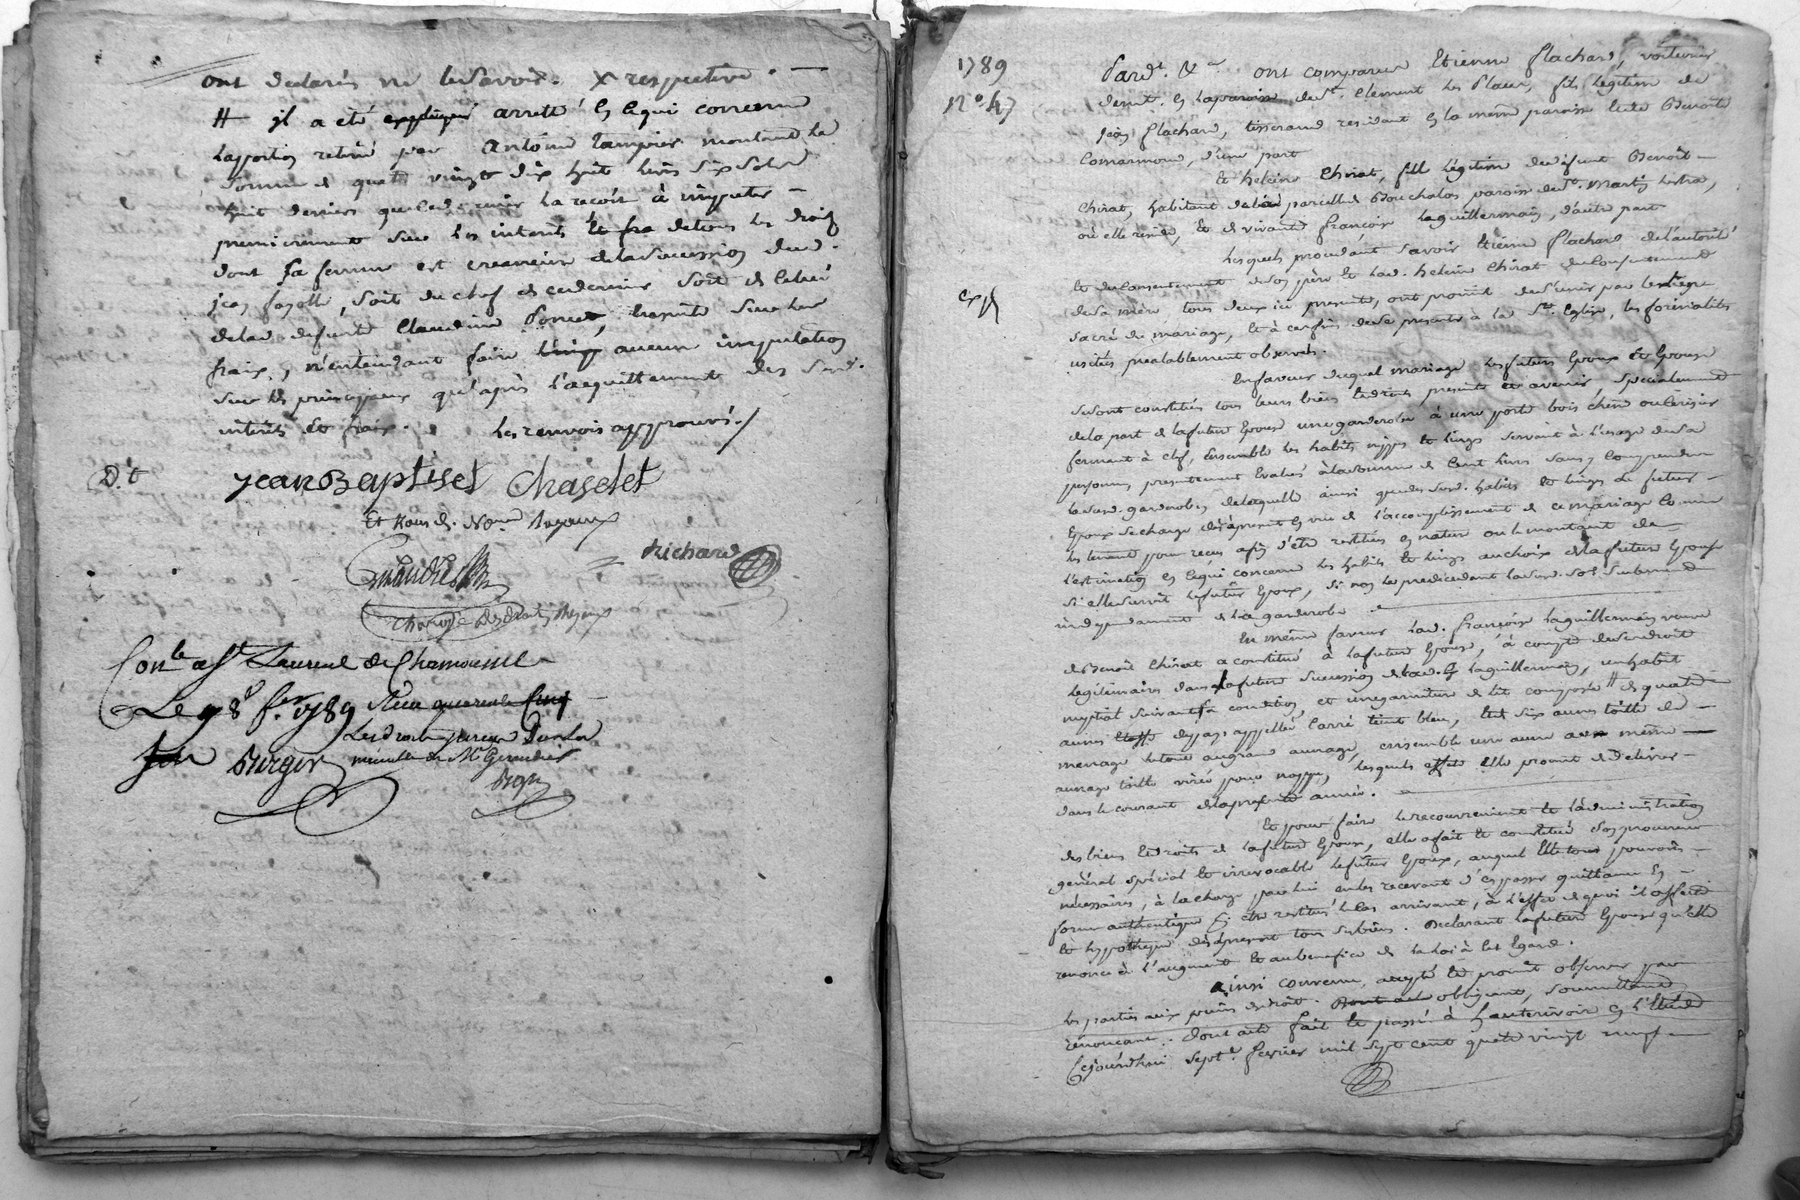 ont declarés ne le savoir. X respective. —
# il a été expliqué arretté En ce qui concerne
laportion retirée par antoine tampier montant la
somme de quatre vingt dix huit livres six sols
huit deniers que led. dernier la reçoit à imputer —
premierement sur les interets Et fra de tous les droits
dont sa femme est creancière de la succession dud.
jean fayolle, soit du chef de ce dernier soit de celui
de lad. defunte Claudine Poncet, Ensuite sur les
fraix, n'entendant faire aucune imputation
sur les principaux qu'après l'acquittement des Susd.
interets et fraix. les renvois approuvés./
D.t
jean Baptiset Chaselet
Et Nous d. No.re Soyeux
Giraudier
Richard
Con.le a St Laurent de Chamousset
Le 98 f.er 1789 Reçu quarente Cinq
Les droits
minutte de Me Giraudier
Durger
1789
N.o 47
expé
Pard.t &a ont comparus Etienne flachard, voiturier
demt. En la paroisse de St. Clement les Places, fils legitime de
jean flachard, tisserand residant En la même paroisse et de Benoite
Comarmond, d'une part
Et heleine Chirat, fille légitime de defunt Benoît —
Chirat, habitant de la parcelle de Bouchalas paroisse de St. Martin Lestra,
où elle réside, Et de vivante françoise laguillermain, d'autre part
lesquels procedant savoir Etienne flachard de l'autorité
Et du consentement de son père Et lad. heleine Chirat du Consentement
de sa mère, tous deux ici presents, ont promis de s'unir par le lien
sacré du mariage, Et à ces fins de se presenter à la Ste. Eglise, les formalités
usitées prealablement observées.
En faveur duquel mariage les futurs Epoux et Epouse
se sont constitués tous leurs biens Et droits presents et avenir, specialement
de la part de la future Epouse une garderobe à une porte bois chêne ou cerisier
fermant à clef, Ensemble les habits nippes Et linges servant à l'usage de sa
personne, presentement Evalués à la somme de Cent livres sans y comprendre
lad. garderobe, de laquelle ainsi que des susd. habits Et linges le futur —
Epoux se charge dès à present En vue de l'accomplissement de ce mariage Comme
les tenant pour reçus afin d'être restitués En nature ou le montant de
l'estimation En ce qui concerne les habits Et linges au choix de la future Epouse
si elle survit le futur Epoux, si non le predecedant lad. so.e seulement
independament de la garderobe.
En même faveur lad. françoise laguillermain veuve
de Benoît Chirat a constitué à la future Epouse, à compte de ses droits
legitimaires dans la future succession de lad. laguillermain, un habit
nuptial suivant sa condition, et une garniture de lit composée # de quatre
aunes Etoffe du pays appellée Carré teint bleu, Et six aunes toille de —
menage le tout au grand aunage, ensemble une aune aux même —
aunage toille virée pour nappe, lesquels effets elle promet de delivrer —
dans le courant de la presente année.
Et pour faire le recouvrement Et l'administration
des biens Et droits de la future Epouse, elle a fait Et constitué son procureur
general spécial Et irrevocable le futur Epoux, auquel Elle tous pouvoirs —
necessaires, à la charge par lui en les recevant d'en passer quittance En —
forme authentique pr. être restitué le cas arrivant, à l'effet de quoi il affecte
Et hypotheque dès àpresent tous ses biens. Declarant la future Epouse qu'elle
renonce à l'augment Et au benefice de la loi à cet Egard.
ainsi convenu, accepté Et promis observer par
les parties aux peines de droit. Dont acte obligeant, soumettant
renonçant. Dont acte fait Et passé à hauterivoire En l'Etude
Cejourd'hui sept.e fevrier mil sept cent quatre vingt neuf —